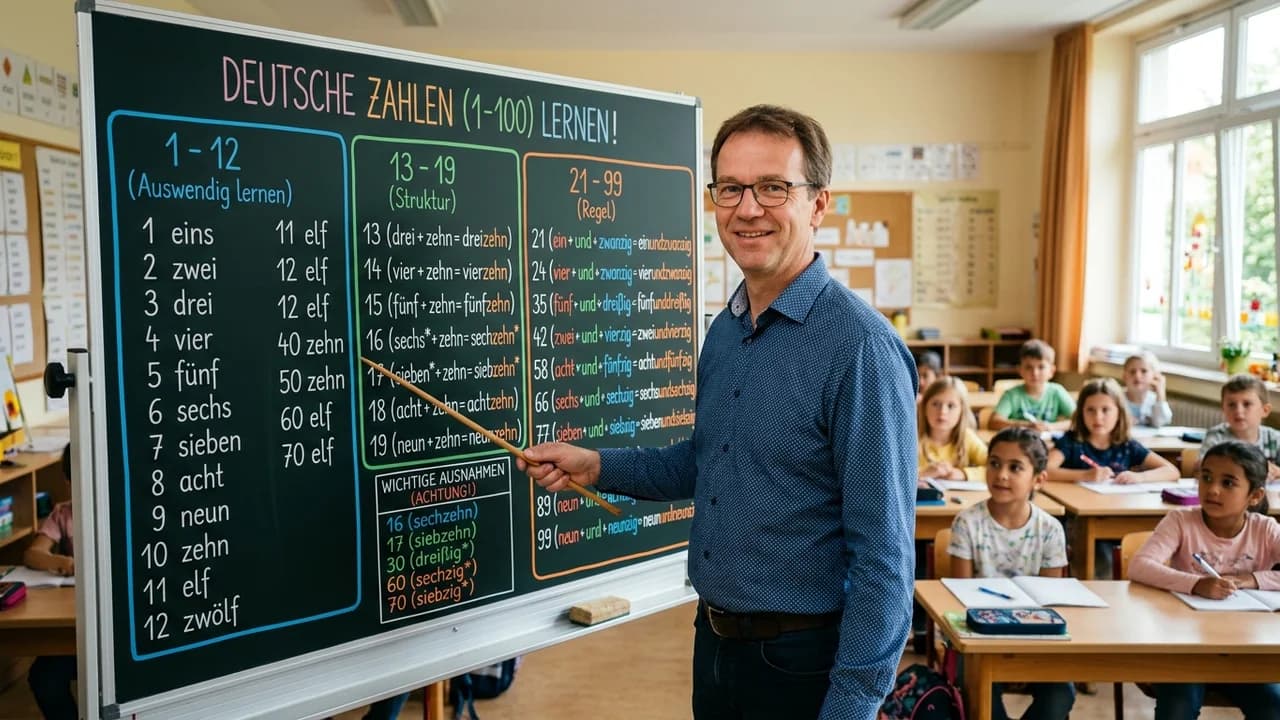 DEUTSCHE ZAHLEN (1-100) LERNEN!
1 - 12
(Auswendig lernen)
1 eins
2 zwei
3 drei
4 vier
5 fünf
6 sechs
7 sieben
8 acht
9 neun
10 zehn
11 elf
12 zwölf
11 elf
12 elf
12 elf
40 zehn
50 zehn
60 elf
70 elf
13 - 19
(Struktur)
13 (drei + zehn = dreizehn)
14 (vier + zehn = vierzehn)
15 (fünf + zehn = fünfzehn)
16 (sechs* + zehn = sechzehn*
17 (sieben* + zehn = siebzehn*
18 (acht + zehn = achtzehn)
19 (neun + zehn = neunzehn)
WICHTIGE AUSNAHMEN
(ACHTUNG!)
16 (sechzehn)
17 (siebzehn)
30 (dreißig*)
60 (sechzig*)
70 (siebzig*)
21 - 99
(Regel)
21 (ein + und + zwanzig =
24 (vier + und + zwanzig = vierundzwanzig
35 (fünf + und + dreißig = fünfunddreißig
42 (zwei + und + vierzig = zweiundvierzig
58 (acht + und + fünfzig = achtundfünfzig
66 (sechs + und + sechzig = sechsundsechzig
77 (sieben + und + siebzig =
89 (neun + und +
99 (neun + und + neunzig =